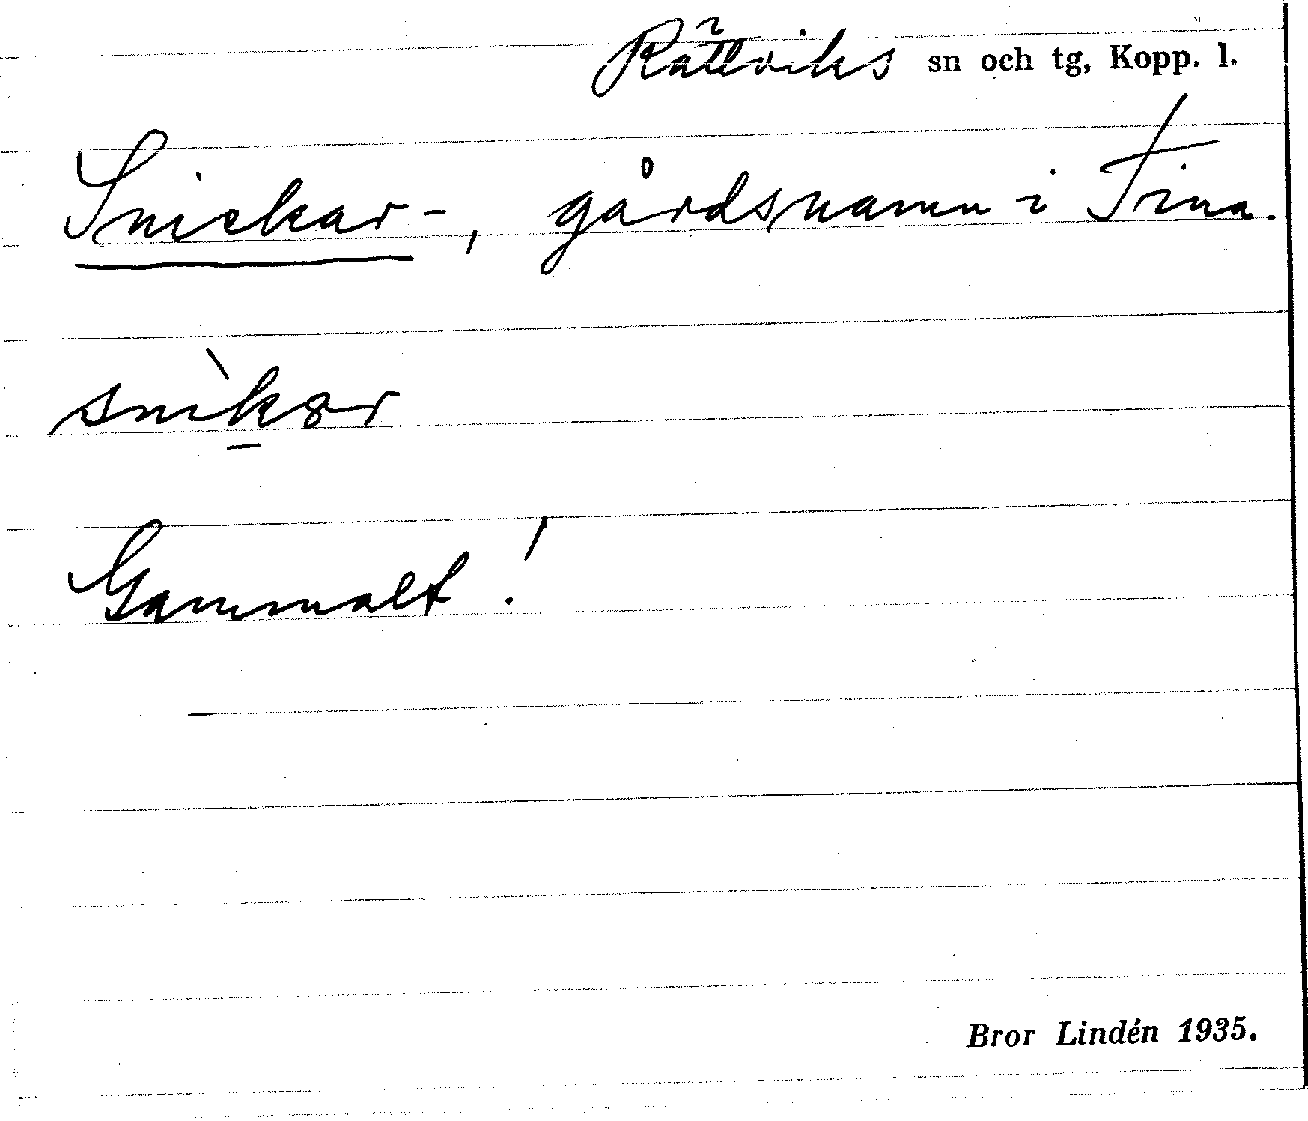 Rättviks sn och tg, Kopp. l.
Snickar-, gårdsnamn i Tina.
snìkar
Gammalt!
Bror Lindén 1935.